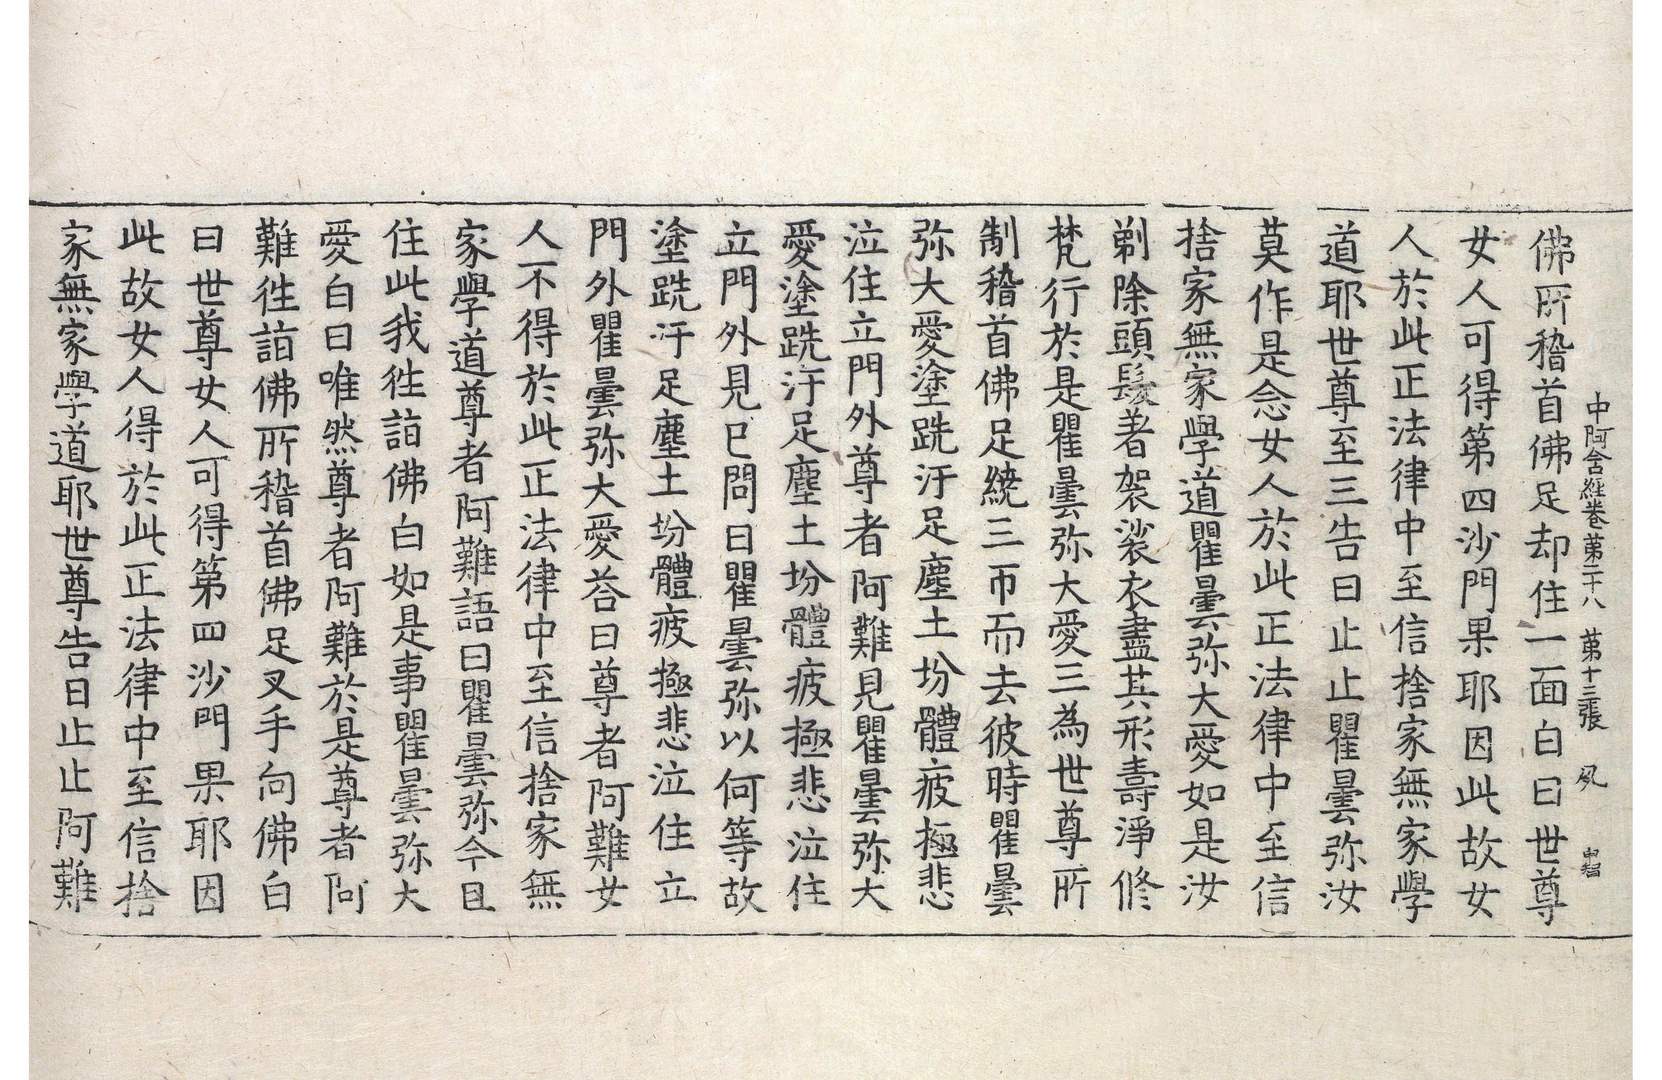 中阿含經卷第二十八 第十三張 夙
佛所稽首佛足却住一面白曰世尊
女人可得第四沙門果耶因此故女
人於此正法律中至信捨家無家學
道耶世尊至三告曰止止瞿曇弥汝
莫作是念女人於此正法律中至信
捨家無家學道瞿曇弥大愛如是汝
剃除頭髮著袈裟衣盡其形壽淨修
梵行於是瞿曇弥大愛三為世尊所
制稽首佛足繞三帀而去彼時瞿曇
弥大愛塗跣汙足塵土坋體疲極悲
泣住立門外尊者阿難見瞿曇弥大
愛塗跣汙足塵土坋體疲極悲泣住
立門外見已問曰瞿曇弥以何等故
塗跣汙足塵土坋體疲極悲泣住立
門外瞿曇弥大愛荅曰尊者阿難女
人不得於此正法律中至信捨家無
家學道尊者阿難語曰瞿曇弥今且
住此我徃詣佛白如是事瞿曇弥大
愛白曰唯然尊者阿難於是尊者阿
難徃詣佛所稽首佛足叉手向佛白
曰世尊女人可得第四沙門果耶因
此故女人得於此正法律中至信捨
家無家學道耶世尊告曰止止阿難